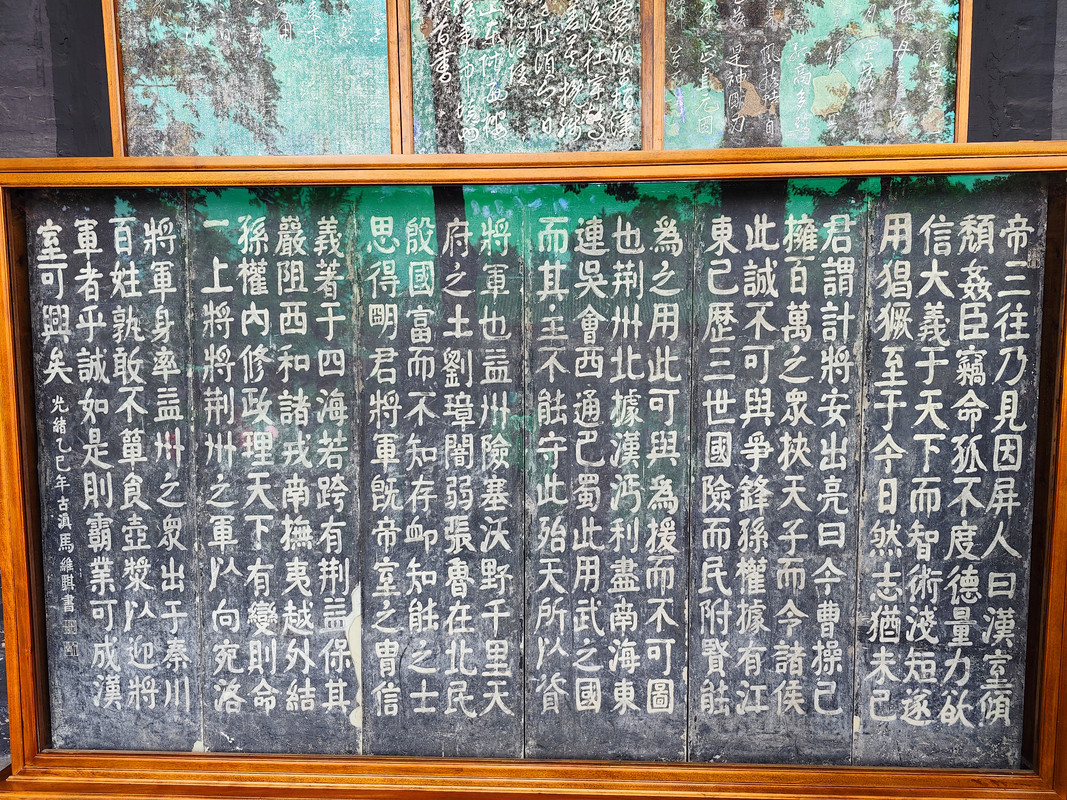 帝三往乃見因屏人曰漢室傾
頹姦臣竊命孤不度德量力欲
信大義于天下而智術淺短遂
用猖獗至于今日然志猶未已
君謂計將安出亮曰今曹操已
擁百萬之眾挾天子而令諸侯
此誠不可與爭鋒孫權據有江
東已歷三世國險而民附賢能
為之用此可與為援而不可圖
也荆州北據漢沔利盡南海東
連吳會西通巴蜀此用武之國
而其主不能守此殆天所以資
將軍也益州險塞沃野千里天
府之土劉璋闇弱張魯在北民
殷國富而不知存卹知能之士
思得明君將軍既帝室之冑信
義著于四海若跨有荆益保其
嚴阻西和諸戎南撫夷越外結
孫權內修政理天下有變則命
一上將將荆州之軍以向宛洛
將軍身率益州之眾出于秦川
百姓孰敢不簞食壺漿以迎將
軍者乎誠如是則霸業可成漢
室可興矣
光緒乙巳年古滇馬維騏書